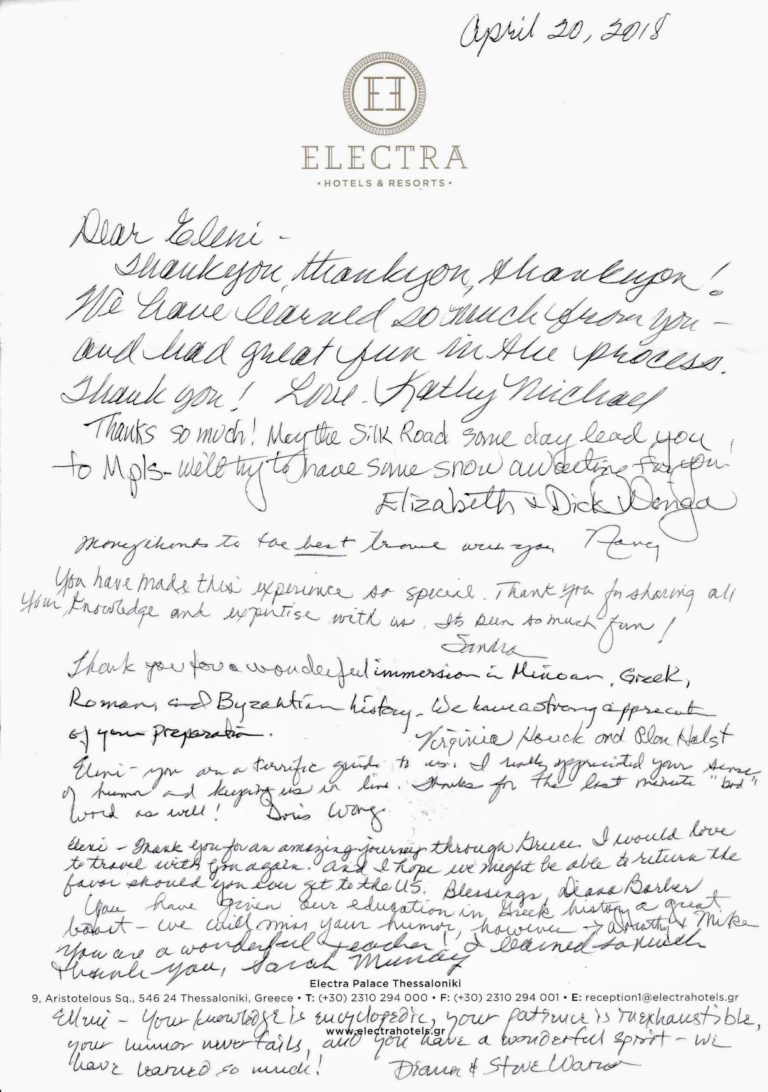 April 20, 2018
EE
ELECTRA
• HOTELS & RESORTS •
Dear Eleni -
Thank you, thank you, thank you!
We have learned so much from you -
and had great fun in the process.
Thank you! Love. Kathy Michael
Thanks so much! May the Silk Road some day lead you
to Mpls - we'll try to have some snow awaiting for you!
Elizabeth & Dick
Many thanks to the best travel with you Nancy
You have made this experience so special. Thank you for sharing all
your knowledge and expertise with us. Its been so much fun!
Sandra
Thank you for a wonderful immersion in Minoan, Greek,
Roman, and Byzantian history. We have a strong appreciation
of your preparation. Virginia Houck and
Eleni - you are a terrific guide to us. I really appreciated your sense
of humor and keeping us in line. Thanks for the last minute "bird"
word as well! Doris Wong
Eleni - Thank you for an amazing journey through Greece. I would love
to travel with you again. And I hope we might be able to return the
favor should you ever get to the US. Blessings, Diana Barber
You have given our education in Greek history a great
boost - we will miss your humor, however - Dorothy & Mike
You are a wonderful teacher! I learned so much
thank you, Sarah Munday
Electra Palace Thessaloniki
9, Aristotelous Sq., 546 24 Thessaloniki, Greece • T: (+30) 2310 294 000 • F: (+30) 2310 294 001 • E: reception1@electrahotels.gr
Elleni - Your knowledge is encyclopedic, your patience is inexhaustible,
www.electrahotels.gr
your humor never fails, and you have a wonderful spirit - we
have learned so much! Diana & Steve